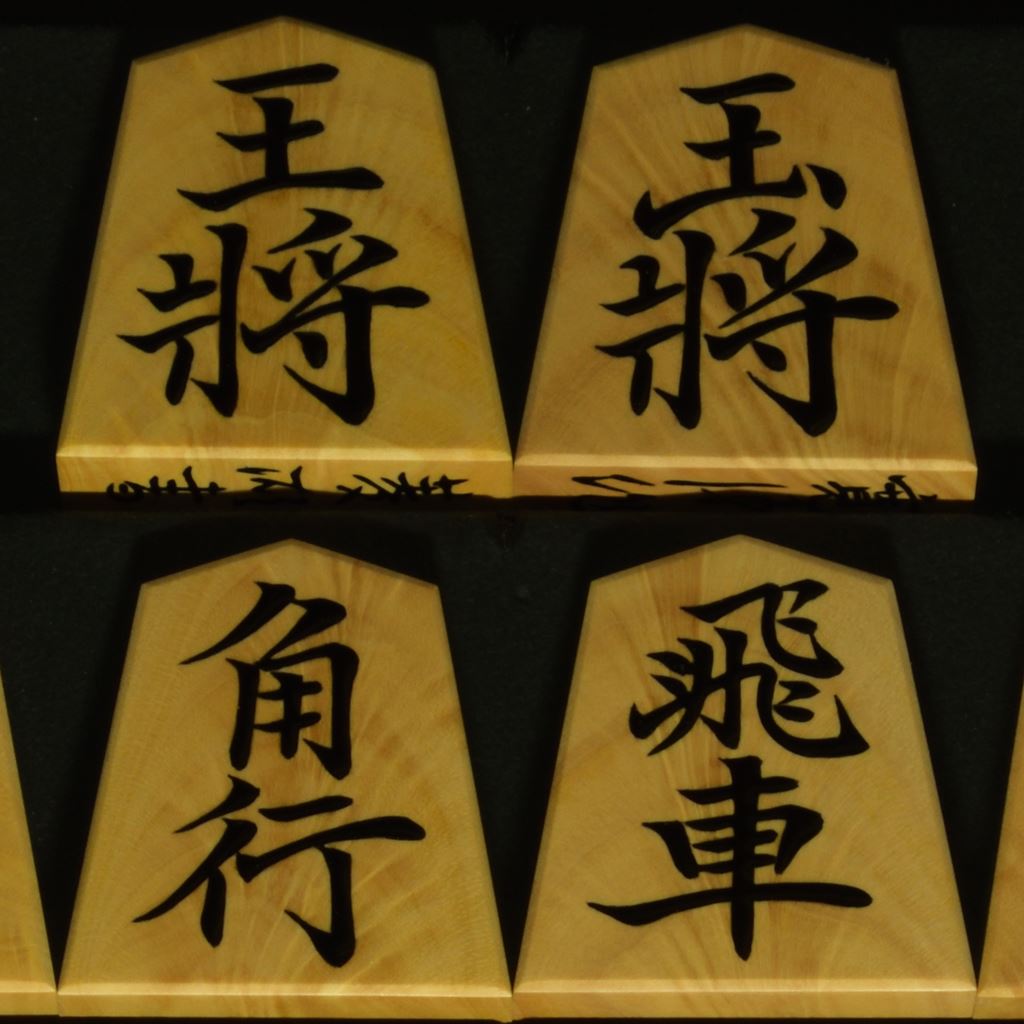 王將
玉將
角行
飛車